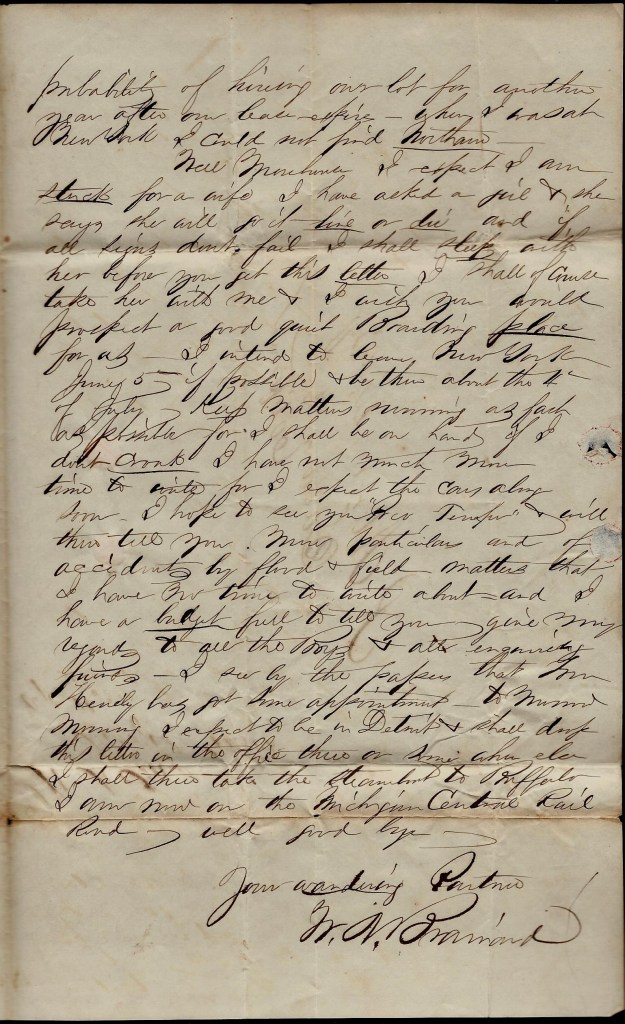 probability of hireing our lot for another
year after our lease expire – when I was at
New York I could not find Northam –
Well Morehouse I expect I am
stuck for a wife I have asked a girl & she
says she will go it live or die and if
all signs dont fail I shall sleep with
her before you get this letter I shall of course
take her with me & I wish you would
prospect a good quiet Boarding place
for us – I intend to leave New York
June 5 if possible & be there about the 4"
of July – Keep matters running as fast
as possible for I shall be on hand if I
dont croak I have not much more
time to write for I expect the cars along
soon – I hope to see you & will
then tell you more particulars and of
accidents by flood & field – matters that
I have no time to write about – and I
have a budget full to tell you – give my
regards to all the Boys & all enquiring
friends – I see by the papers that
has got some appointment – to morrow
morning I expect to be in Detroit & shall drop
this letter in the office there or some where else
I shall there take the steamboat to Buffalo
I am now on the Michigan Central Rail
Road – well good bye –
Your wandering Partner
W. N. Brainard